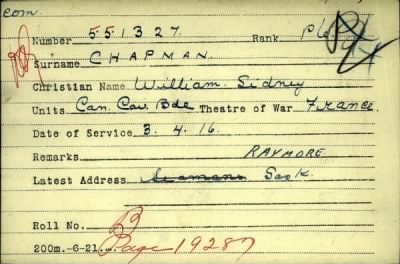 com
Number 551327 Rank Pte
Surname CHAPMAN.
Christian Name William Sidney
Units Can. Cav. Bde Theatre of War France.
Date of Service 3. 4. 16.
Remarks RAYMORE
Latest Address Semans Sask.
Roll No. B
200m.-6-21. Page 19287